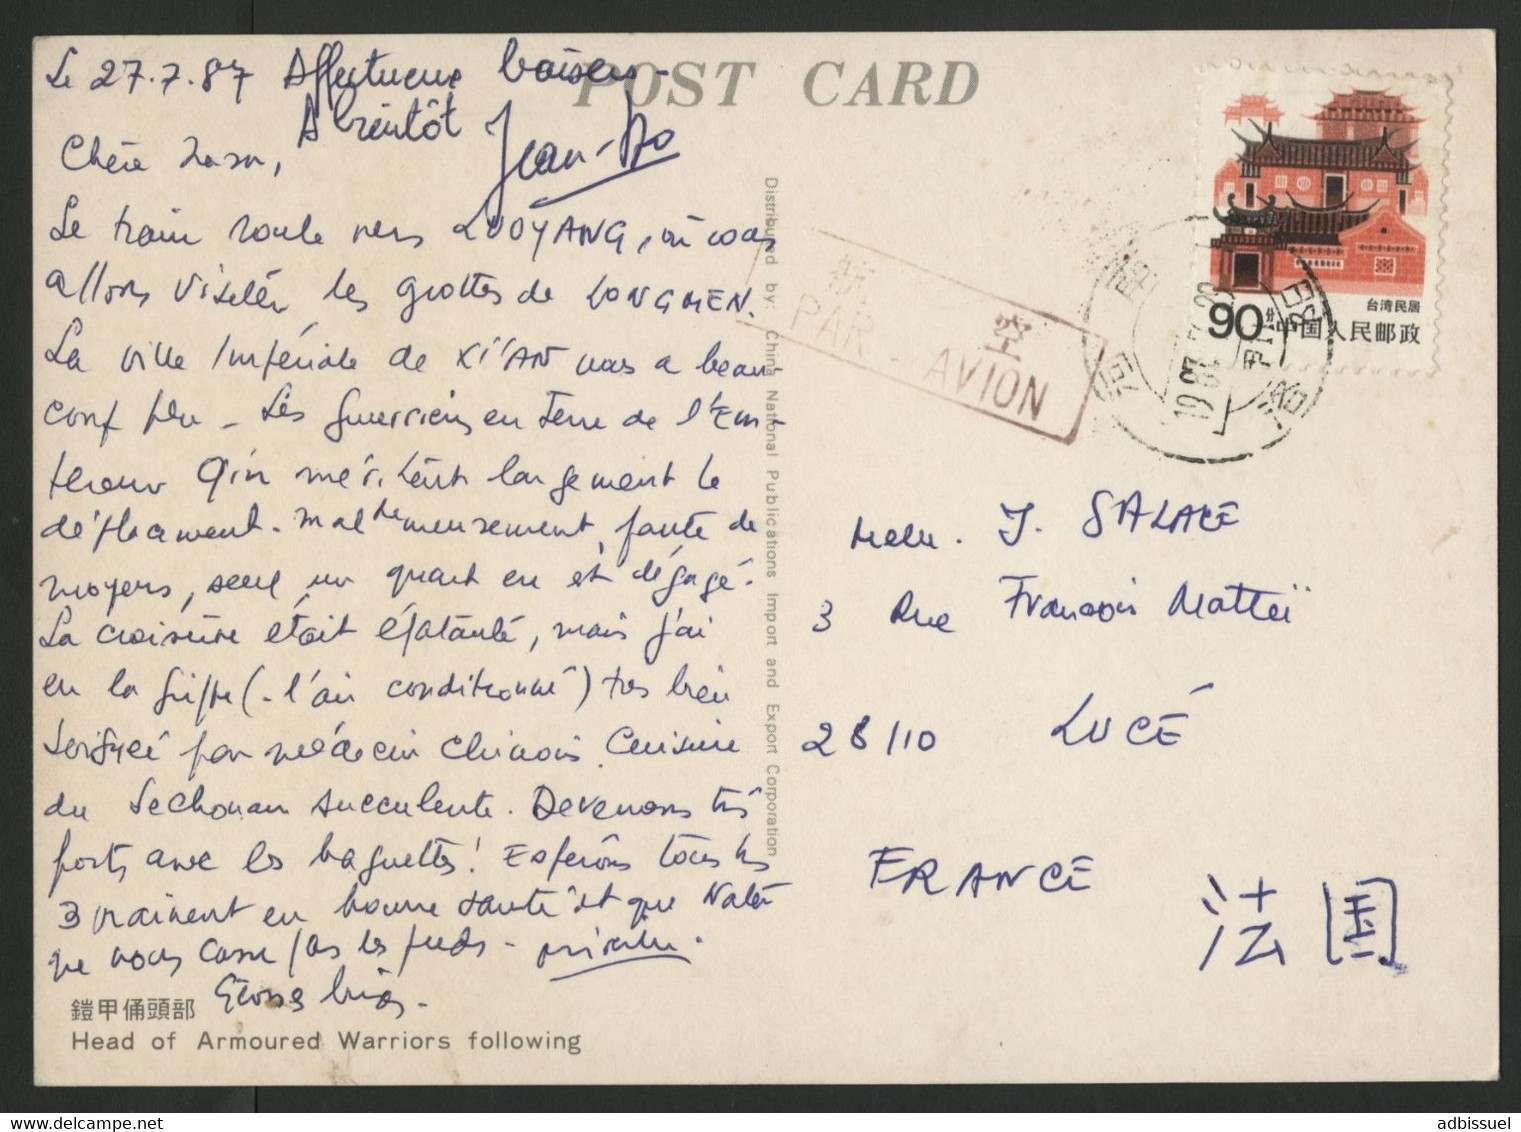 POST CARD
Le 27.7.87 Affectueux baisers -
A bientôt Jean-
Chère
Le train roule vers LUOYANG, où nous
allons visiter les grottes de LONGMEN.
La ville Impériale de XI'AN nous a beau-
coup plu - Les guerriers en terre de l'Em-
pereur Qin méritent largement le
déplacement. Malheureusement, faute de
moyens, seul un quart en est dégagé.
La croisière était épatante, mais j'ai
eu la grippe (- l'air conditionné) très bien
soigné par médecin chinois. Cuisine
du Sechouan succulente. Devenons très
forts avec les baguettes! Espérons tous les
3 vraiment en bonne santé et que
que vous casse pas les pieds -
鎧甲俑頭部
Head of Armoured Warriors following
Distributed by: China National Publications Import and Export Corporation
航空
PAR AVION
台湾民居
90分 中国人民邮政
J. SALACE
3 Rue François Matteï
28110 LUCÉ
FRANCE
法国
www.adbissuel.com